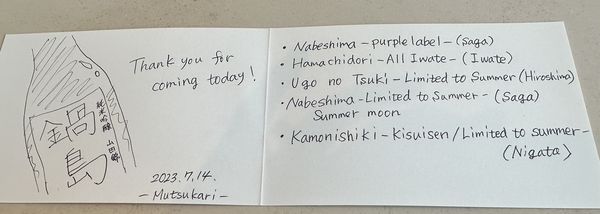 鍋島
純米吟醸 山田錦
Thank you for
coming today!
2023.7.14.
- Mutsukari -
• Nabeshima - purple label - (Saga)
• Hamachidori - All Iwate - (Iwate)
• Ugo no Tsuki - Limited to Summer (Hiroshima)
• Nabeshima - Limited to Summer - (Saga)
Summer moon
• Kamonishiki - Kisuisen / Limited to summer -
(Nigata)